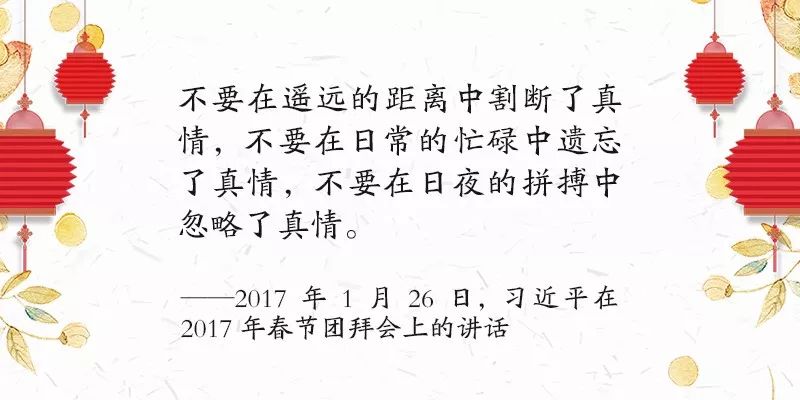 不要在遥远的距离中割断了真
情，不要在日常的忙碌中遗忘
了真情，不要在日夜的拼搏中
忽略了真情。
——2017 年 1 月 26 日，习近平在
2017年春节团拜会上的讲话